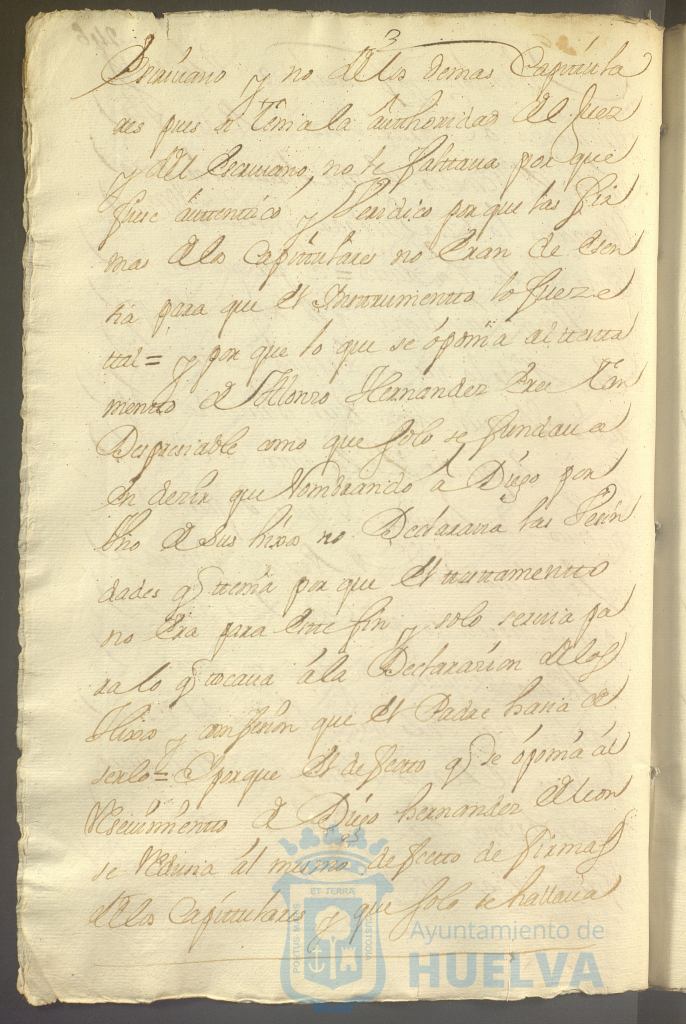 3
Escriuano y no de los demas Capitula
res pues si tenia la authoridad del Juez
y del Escriuano, no le faltaua por que
fuese autentico y Veridico por que las fir
mas de los Capitulares no Eran de esen
cia para que el Instrumento lo fuese
tal = y por que lo que se oponia al testa
mento de Alonso Hernandez Era tan
Despreciable como que solo se fundaua
en dezir que Nombrando à Diego por
Vno de sus hijos no Declaraua las
dades q tenia por que el testamento
no Era para este fin y solo seruia pa
ra lo q tocaua à la Declarazion de los
Hijos y confesion que el Padre hacia de
serlo = Y porque el defecto q se oponia al
Reseuimiento de Diego hernandez de leon
se Reducia al mismo defecto de firmas
de los Capitulares y que solo se hallaua
ET TERRÆ
PORTUS MARIS
CUSTODIA
Ayuntamiento de
HUELVA